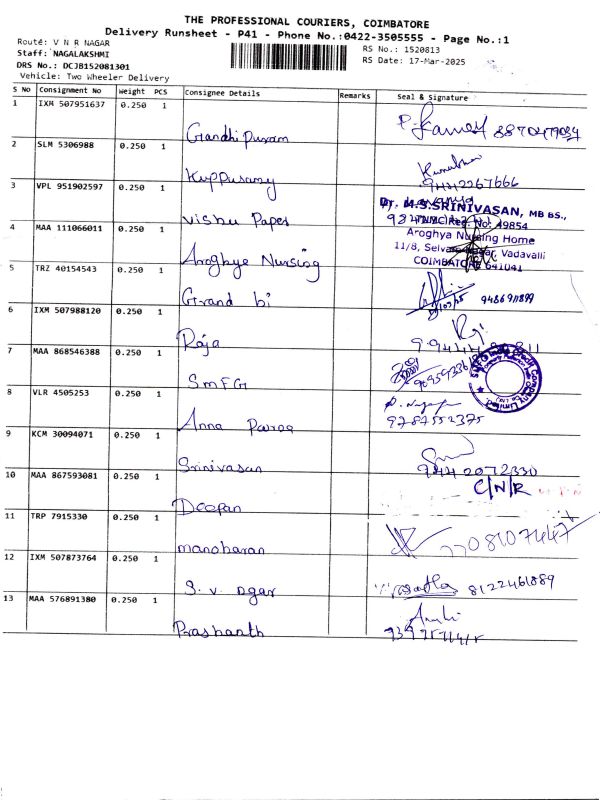 THE PROFESSIONAL COURIERS, COIMBATORE
Delivery Runsheet - P41 - Phone No.:0422-3505555 - Page No.:1
Route: V N R NAGAR
Staff: NAGALAKSHMI
DRS No.: DCJB152081301
Vehicle: Two Wheeler Delivery
RS No.: 1520813
RS Date: 17-Mar-2025
S No Consignment No Weight PCS Consignee Details Remarks Seal & Signature
1 IXM 507951637 0.250 1
Gandhi Puram
2 SLM 5306988 0.250 1
Kuppusamy 9442267666
3 VPL 951902597 0.250 1
Vishu Paper
Dr. M.S.SRINIVASAN, MB BS.,
TNMC Reg. No: 49854
4 MAA 111066011 0.250 1
Aroghya Nursing Home
11/8, Vadavalli
COIMBATORE 641041
Aroghye Nursing
5 TRZ 40154543 0.250 1
Grand bi 9486911899
6 IXM 507988120 0.250 1
Raja
7 MAA 868546388 0.250 1
SMFG
SMFG India Credit Company Limited
8 VLR 4505253 0.250 1
Anna 9787552375
9 KCM 30094071 0.250 1
Srinivasan 9442072330
10 MAA 867593081 0.250 1 C/N/R
Deepan
11 TRP 7915330 0.250 1
manoharan 7708107447
12 IXM 507873764 0.250 1
S. V. 8122461889
13 MAA 576891380 0.250 1
Prashanth